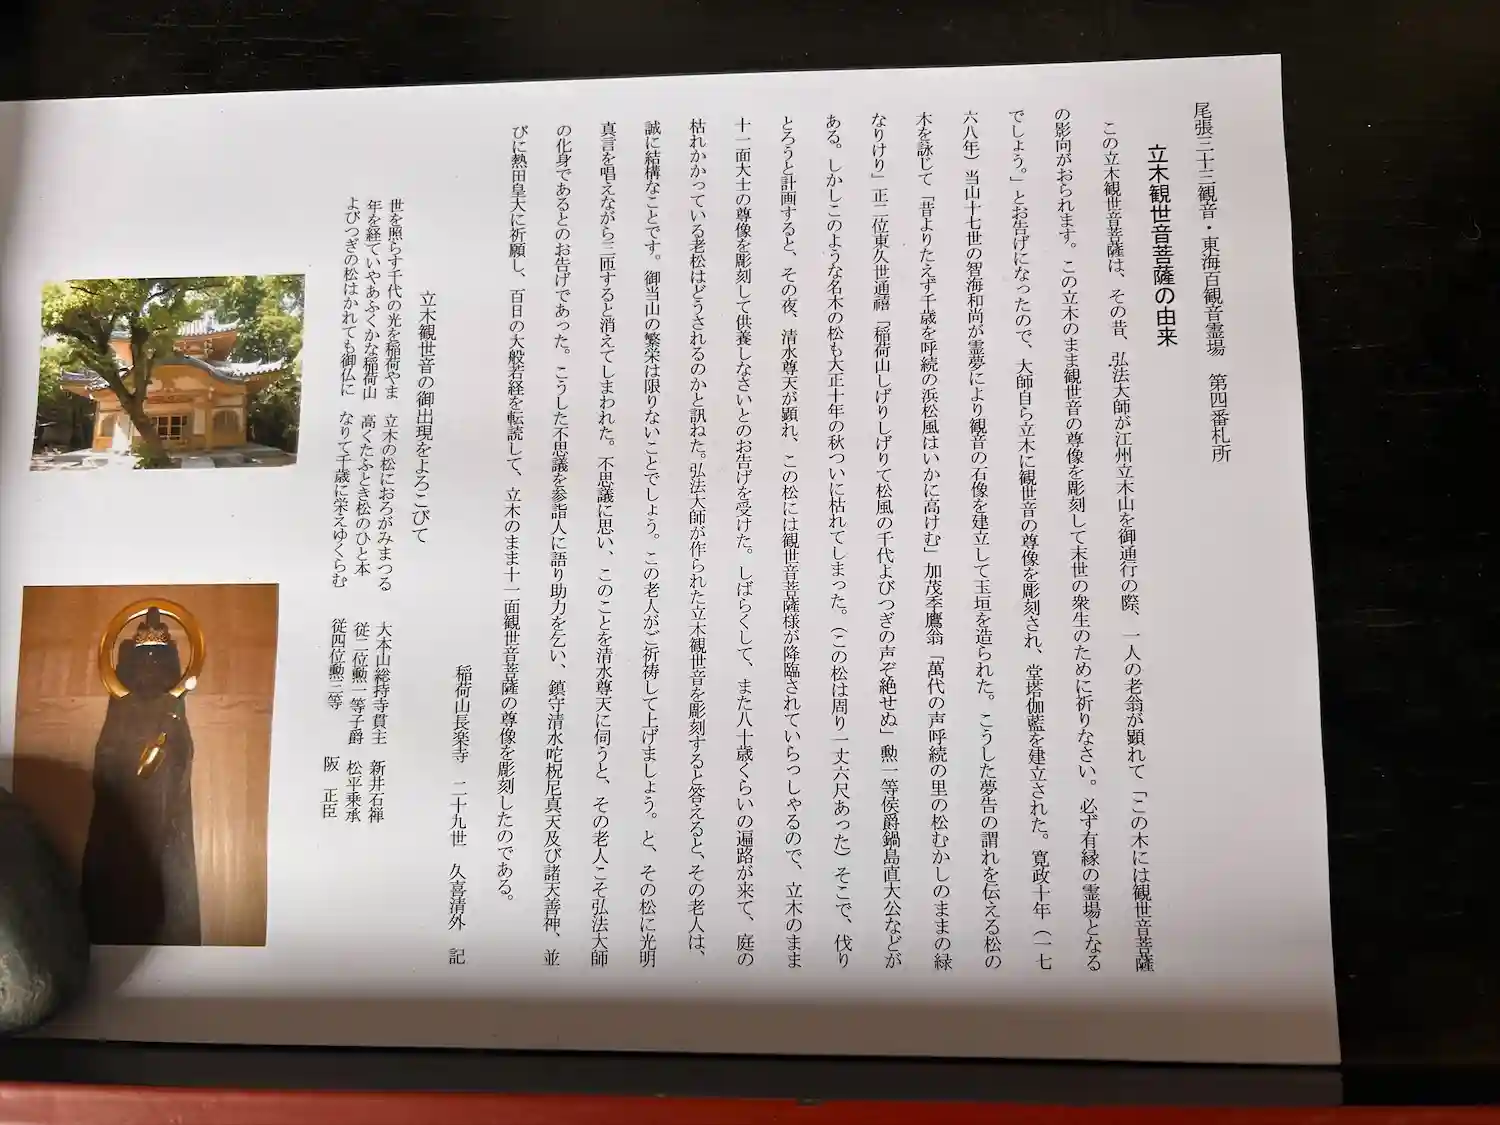 尾張三十三観音・東海百観音霊場　第四番札所
立木観世音菩薩の由来
この立木観世音菩薩は、その昔、弘法大師が江州立木山を御通行の際、一人の老翁が顕れて「この木には観世音菩薩
の影向がおられます。この立木のまま観世音の尊像を彫刻して末世の衆生のために祈りなさい。必ず有縁の霊場となる
でしょう。」とお告げになったので、大師自ら立木に観世音の尊像を彫刻され、堂塔伽藍を建立された。寛政十年（一七
六八年）当山十七世の智海和尚が霊夢により観音の石像を建立して玉垣を造られた。こうした夢告の謂れを伝える松の
木を詠じて「昔よりたえず千歳を呼続の浜松風はいかに高けむ」加茂季鷹翁「萬代の声呼続の里の松むかしのままの緑
なりけり」正二位東久世通禧「稲荷山しげりしげりて松風の千代よびつぎの声ぞ絶せぬ」勲一等侯爵鍋島直大公などが
ある。しかしこのような名木の松も大正十年の秋ついに枯れてしまった。（この松は周り一丈六尺あった）そこで、伐り
とろうと計画すると、その夜、清水尊天が顕れ、この松には観世音菩薩様が降臨されていらっしゃるので、立木のまま
十一面大士の尊像を彫刻して供養しなさいとのお告げを受けた。しばらくして、また八十歳くらいの遍路が来て、庭の
枯れかかっている老松はどうされるのかと訊ねた。弘法大師が作られた立木観世音を彫刻すると答えると、その老人は、
誠に結構なことです。御当山の繁栄は限りないことでしょう。この老人がご祈祷して上げましょう。と、その松に光明
真言を唱えながら三匝すると消えてしまわれた。不思議に思い、このことを清水尊天に伺うと、その老人こそ弘法大師
の化身であるとのお告げであった。こうした不思議を参詣人に語り助力を乞い、鎮守清水咜枳尼真天及び諸天善神、並
びに熱田皇大に祈願し、百日の大般若経を転読して、立木のまま十一面観世音菩薩の尊像を彫刻したのである。
稲荷山長楽寺　二十九世　久喜清外　記
立木観世音の御出現をよろこびて
世を照らす千代の光を稲荷やま　立木の松におろがみまつる　大本山総持寺貫主　新井石禅
年を経ていやあふくかな稲荷山　高くたふとき松のひと本　従二位勲一等子爵　松平乗承
よびつぎの松はかれても御仏に　なりて千歳に栄えゆくらむ　従四位勲三等　阪　正臣